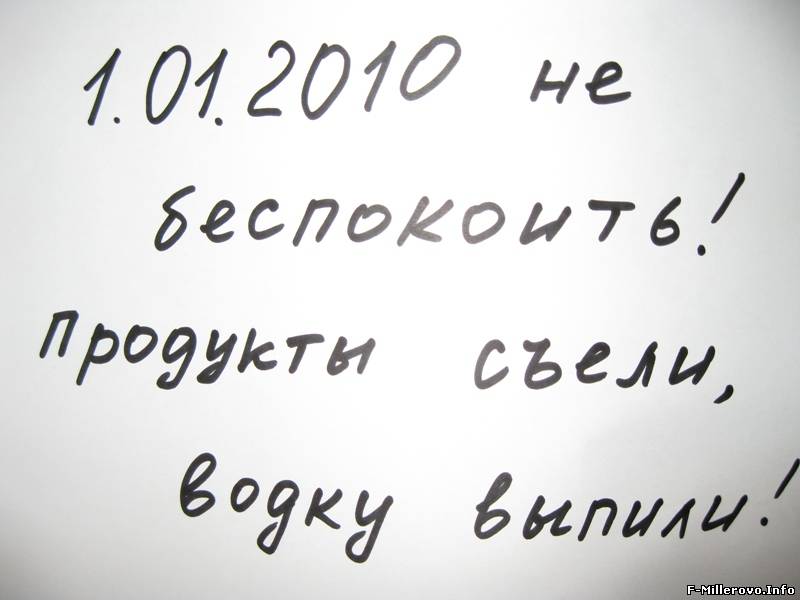 1.01.2010 не
беспокоить!
продукты съели,
водку выпили!
F-Millerovo.Info